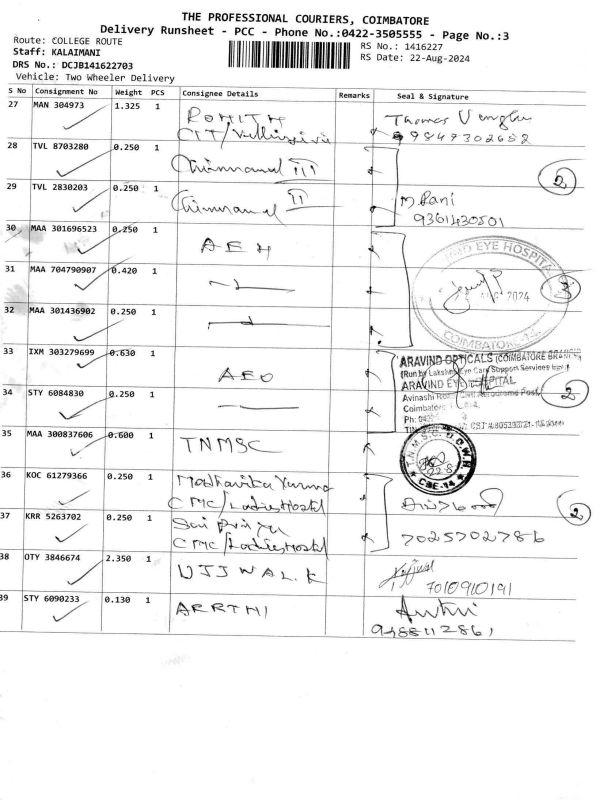 THE PROFESSIONAL COURIERS, COIMBATORE
Delivery Runsheet - PCC - Phone No.:0422-3505555 - Page No.:3
Route: COLLEGE ROUTE
RS No.: 1416227
Staff: KALAIMANI
RS Date: 22-Aug-2024
DRS No.: DCJB141622703
Vehicle: Two Wheeler Delivery
S No Consignment No Weight PCS Consignee Details Remarks Seal & Signature
27 MAN 304973 1.325 1 ROHITH Thomas
CIT/ 9847302652
28 TVL 8703280 0.250 1 III 2
29 TVL 2830203 0.250 1 II M. Rani
9361430501
30 MAA 301696523 0.250 1 AEH EYE HOSPITAL
31 MAA 704790907 0.420 1 2024 3
32 MAA 301436902 0.250 1 COIMBATORE-14.
33 IXM 303279699 0.630 1 AEO ARAVIND OPTICALS (COIMBATORE BRANCH)
(Run by Eye Care Support Services
34 STY 6084830 0.250 1 ARAVIND EYE HOSPITAL 2
Avinashi Post,
Coimbatore
Ph:
35 MAA 300837606 0.600 1 TNMSC T.N.M.S.C.
CBE-14
36 KOC 61279366 0.250 1 Madhavika
CMC/Ladies Hostel 2
37 KRR 5263702 0.250 1 Sai Priya 7025702786
CMC/Ladies Hostel
38 OTY 3846674 2.350 1 UJJWAL.K
7010910191
39 STY 6090233 0.130 1 ARRTHI